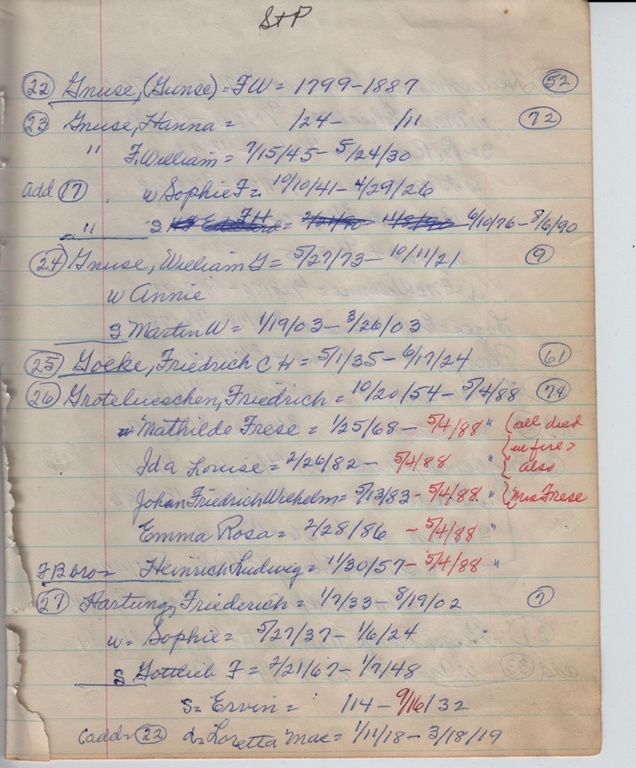 S+P
22 Gnuse, (Gunse) = FW = 1799-1887 52
23 Gnuse, Hanna = /24- /11 72
" F. William = 7/15/45- 5/24/30
add 17 w Sophie F = 10/10/41- 4/29/26
" S FH = 6/10/76- 8/6/90
24 Gnuse, William G = 5/27/73- 10/11/21 9
w Annie
S Martin W = 1/19/03- 3/26/03
25 Goeke, Friedrich C H = 5/1/35- 6/17/24 61
26 Grotelueschen, Friedrich = 10/20/54- 5/4/88 74
w Mathilde Frese = 1/25/68- 5/4/88 " (all died
Ida Louise = 2/26/82- 5/4/88 " in fire >
also
Johan Friedrich Welhelm = 5/13/83- 5/4/88 " Mrs Frese
Emma Rosa = 2/28/86 - 5/4/88 "
FB bro = Heinrich Ludwig = 11/30/57- 5/4/88 "
27 Hartung, Friederich = 1/7/33- 8/19/02 7
w = Sophie = 5/27/37- 1/6/24
S Gottlieb F = 2/21/67- 1/7/48
S = Ervin = /14- 9/16/32
(add = 22 d = Loretta Mae = 1/11/18- 3/18/19